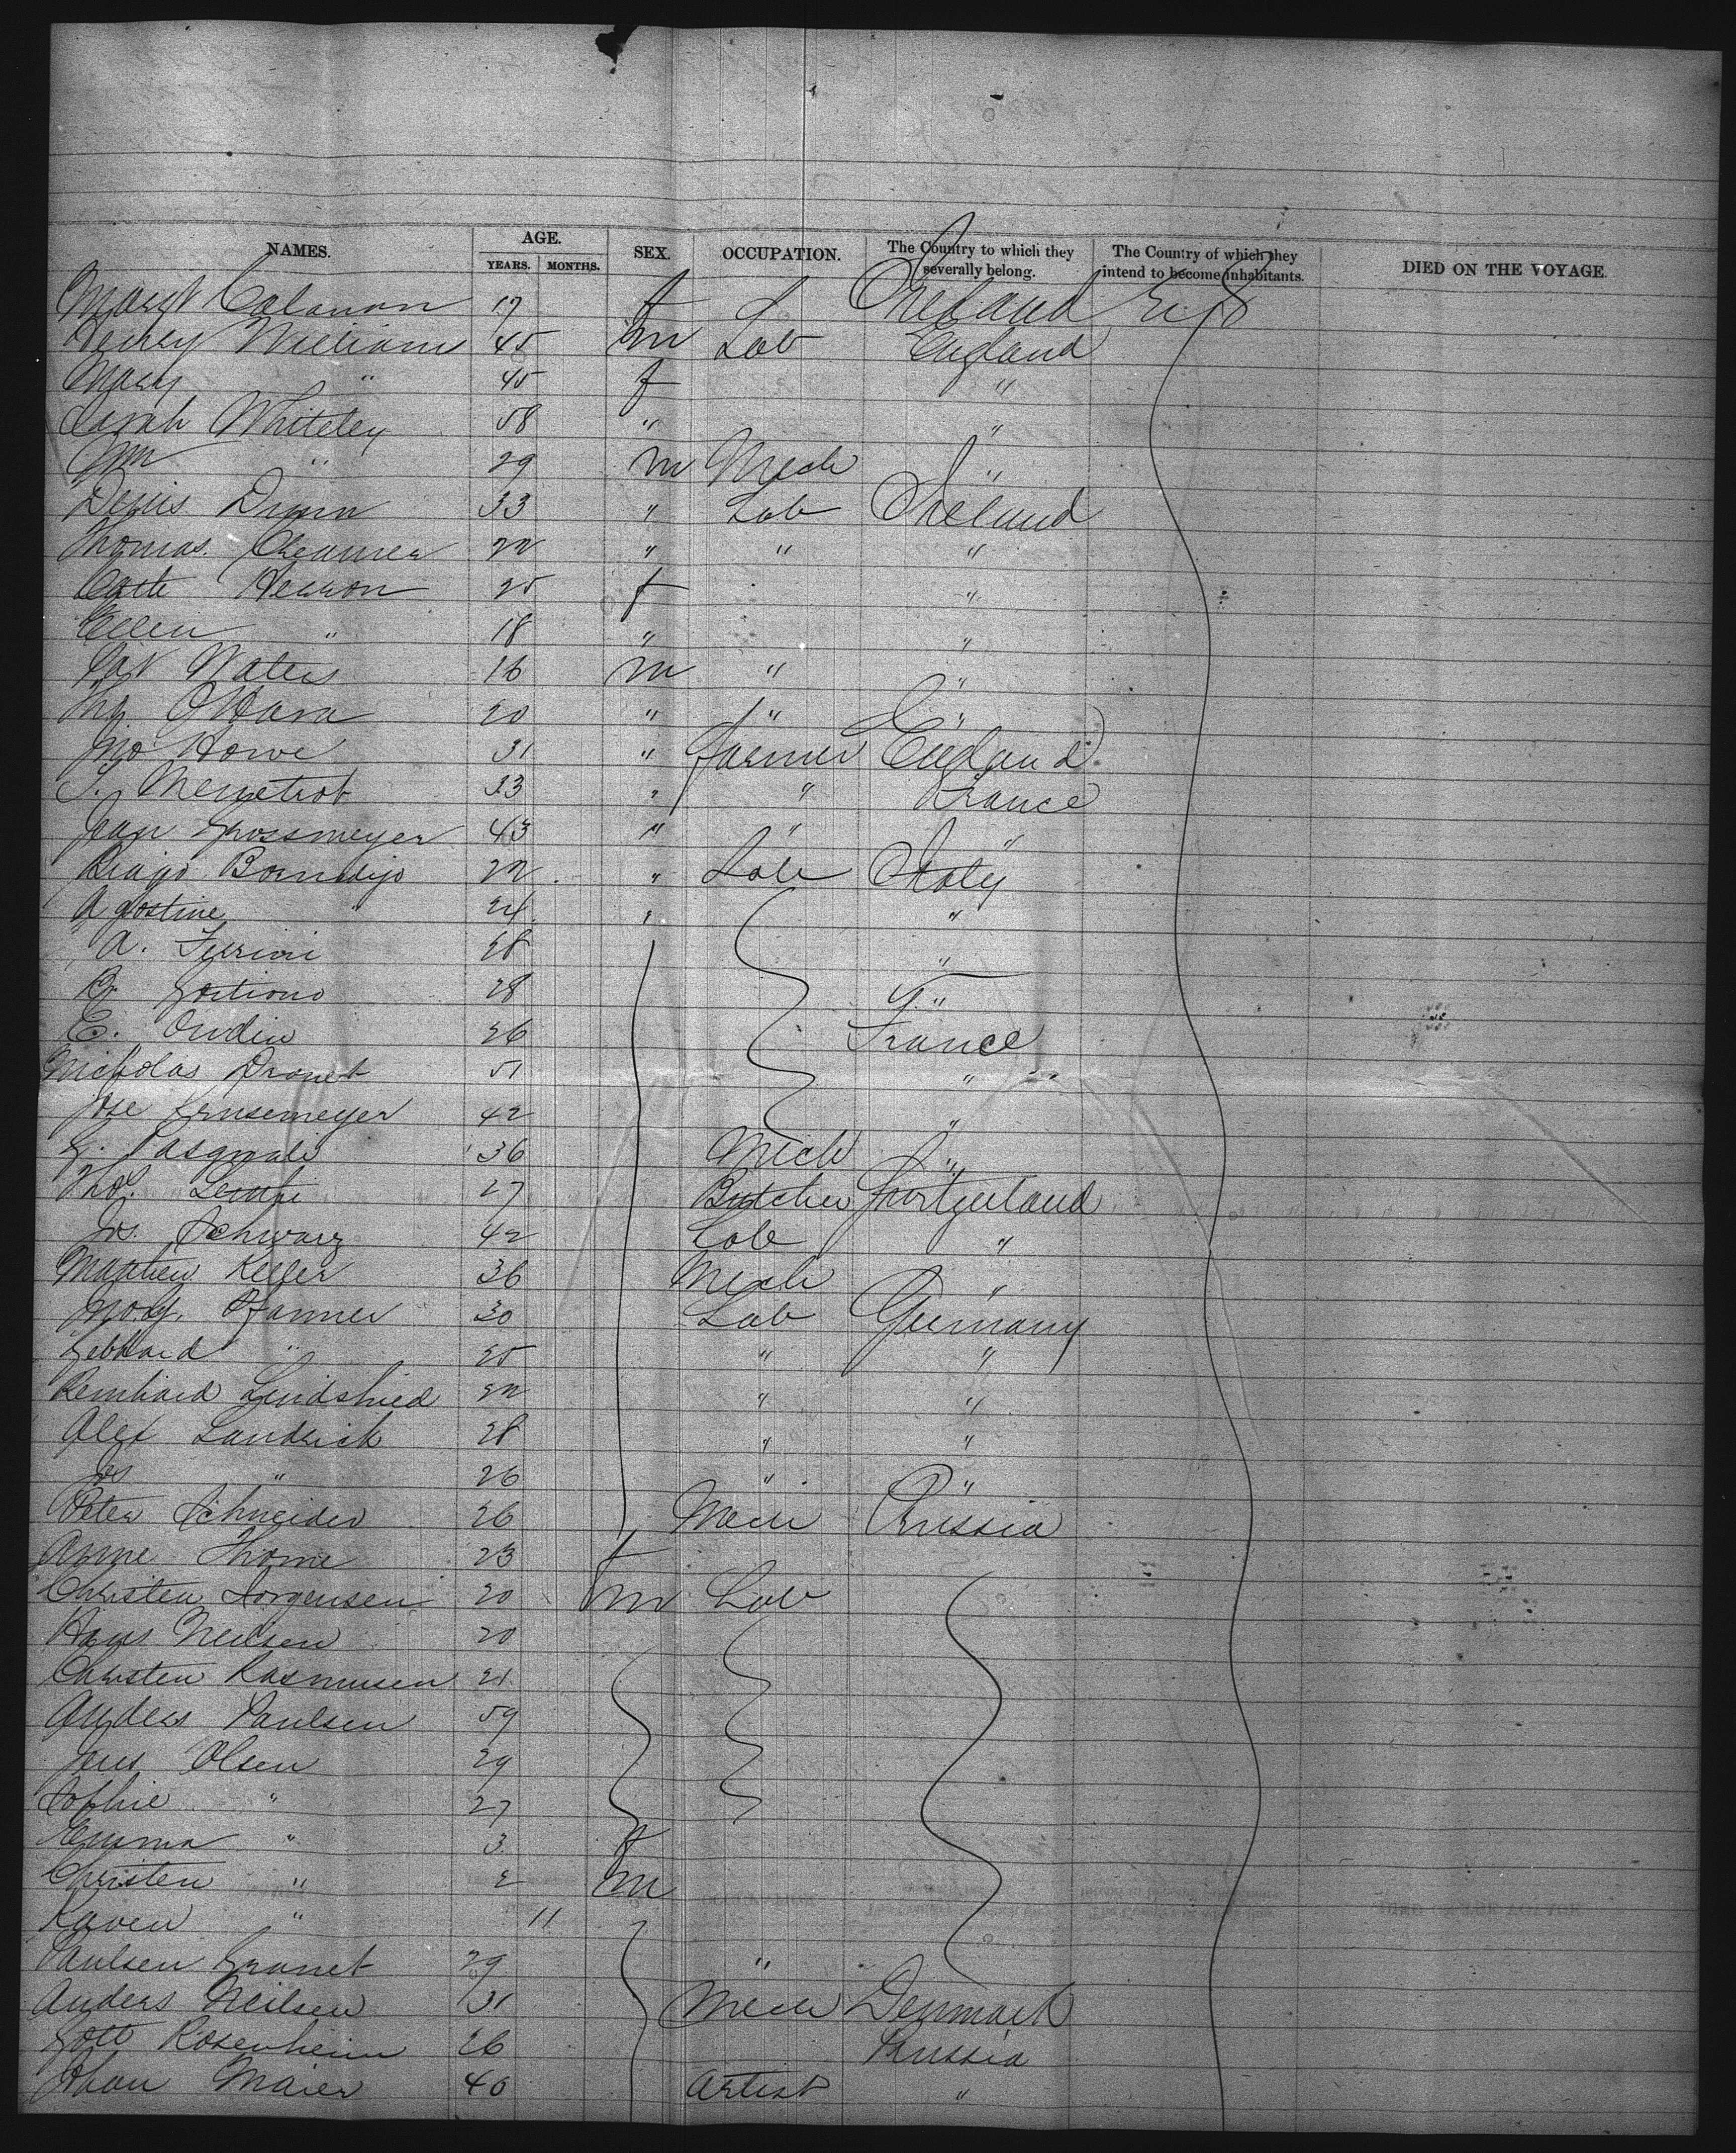 NAMES. AGE. SEX. OCCUPATION. The Country to which they severally belong. The Country of which they intend to become inhabitants. DIED ON THE VOYAGE.
YEARS. MONTHS.
Margt 17 f Ireland U.S
Henry William 45 m Lab England
Mary " 45 f "
Sarah Whiteley 58 " "
Wm " 29 m Mech "
Denis Dunn 33 " Lab Ireland
Thomas Creamer 22 " " "
Cath Herron 25 f "
Ellen " 18 " "
Pat Waters 16 m " "
O'Hara 20 " " "
Jno Howe 31 " Farmer England
J. Menetrot 33 " " France
Jean Grossmeyer 43 " " "
22 " Lab Italy
Agostine " 24 " "
A. 28 "
28 "
E. Oudin 26 France
Nicholas Dronet 51 "
42 "
G. Pasquali 36 Mech "
27 Butcher Switzerland
Jos. Schwarz 42 Lab "
Mathew Keller 36 Mech "
Pfanner 30 Lab Germany
Gebhard " 25 " "
Reinhard Lindshied 22 " "
Alex 28 " "
Jos " 26 " "
Peter Schneider 26 Mech Prussia
Anne Thome 23 f
Christen Jorgensen 20 m Lab
Hans Neilsen 20
Christen Rasmusen 21
Anders Paulsen 59
Jens Olsen 29
Sophie " 27
Emma " 3 f
Christen " 2 m
Karen " 11
Paulsen 29 "
Anders Neilsen 31 Mech Denmark
Gott Rosenheim 26 Prussia
Johan Maier 40 Artist "